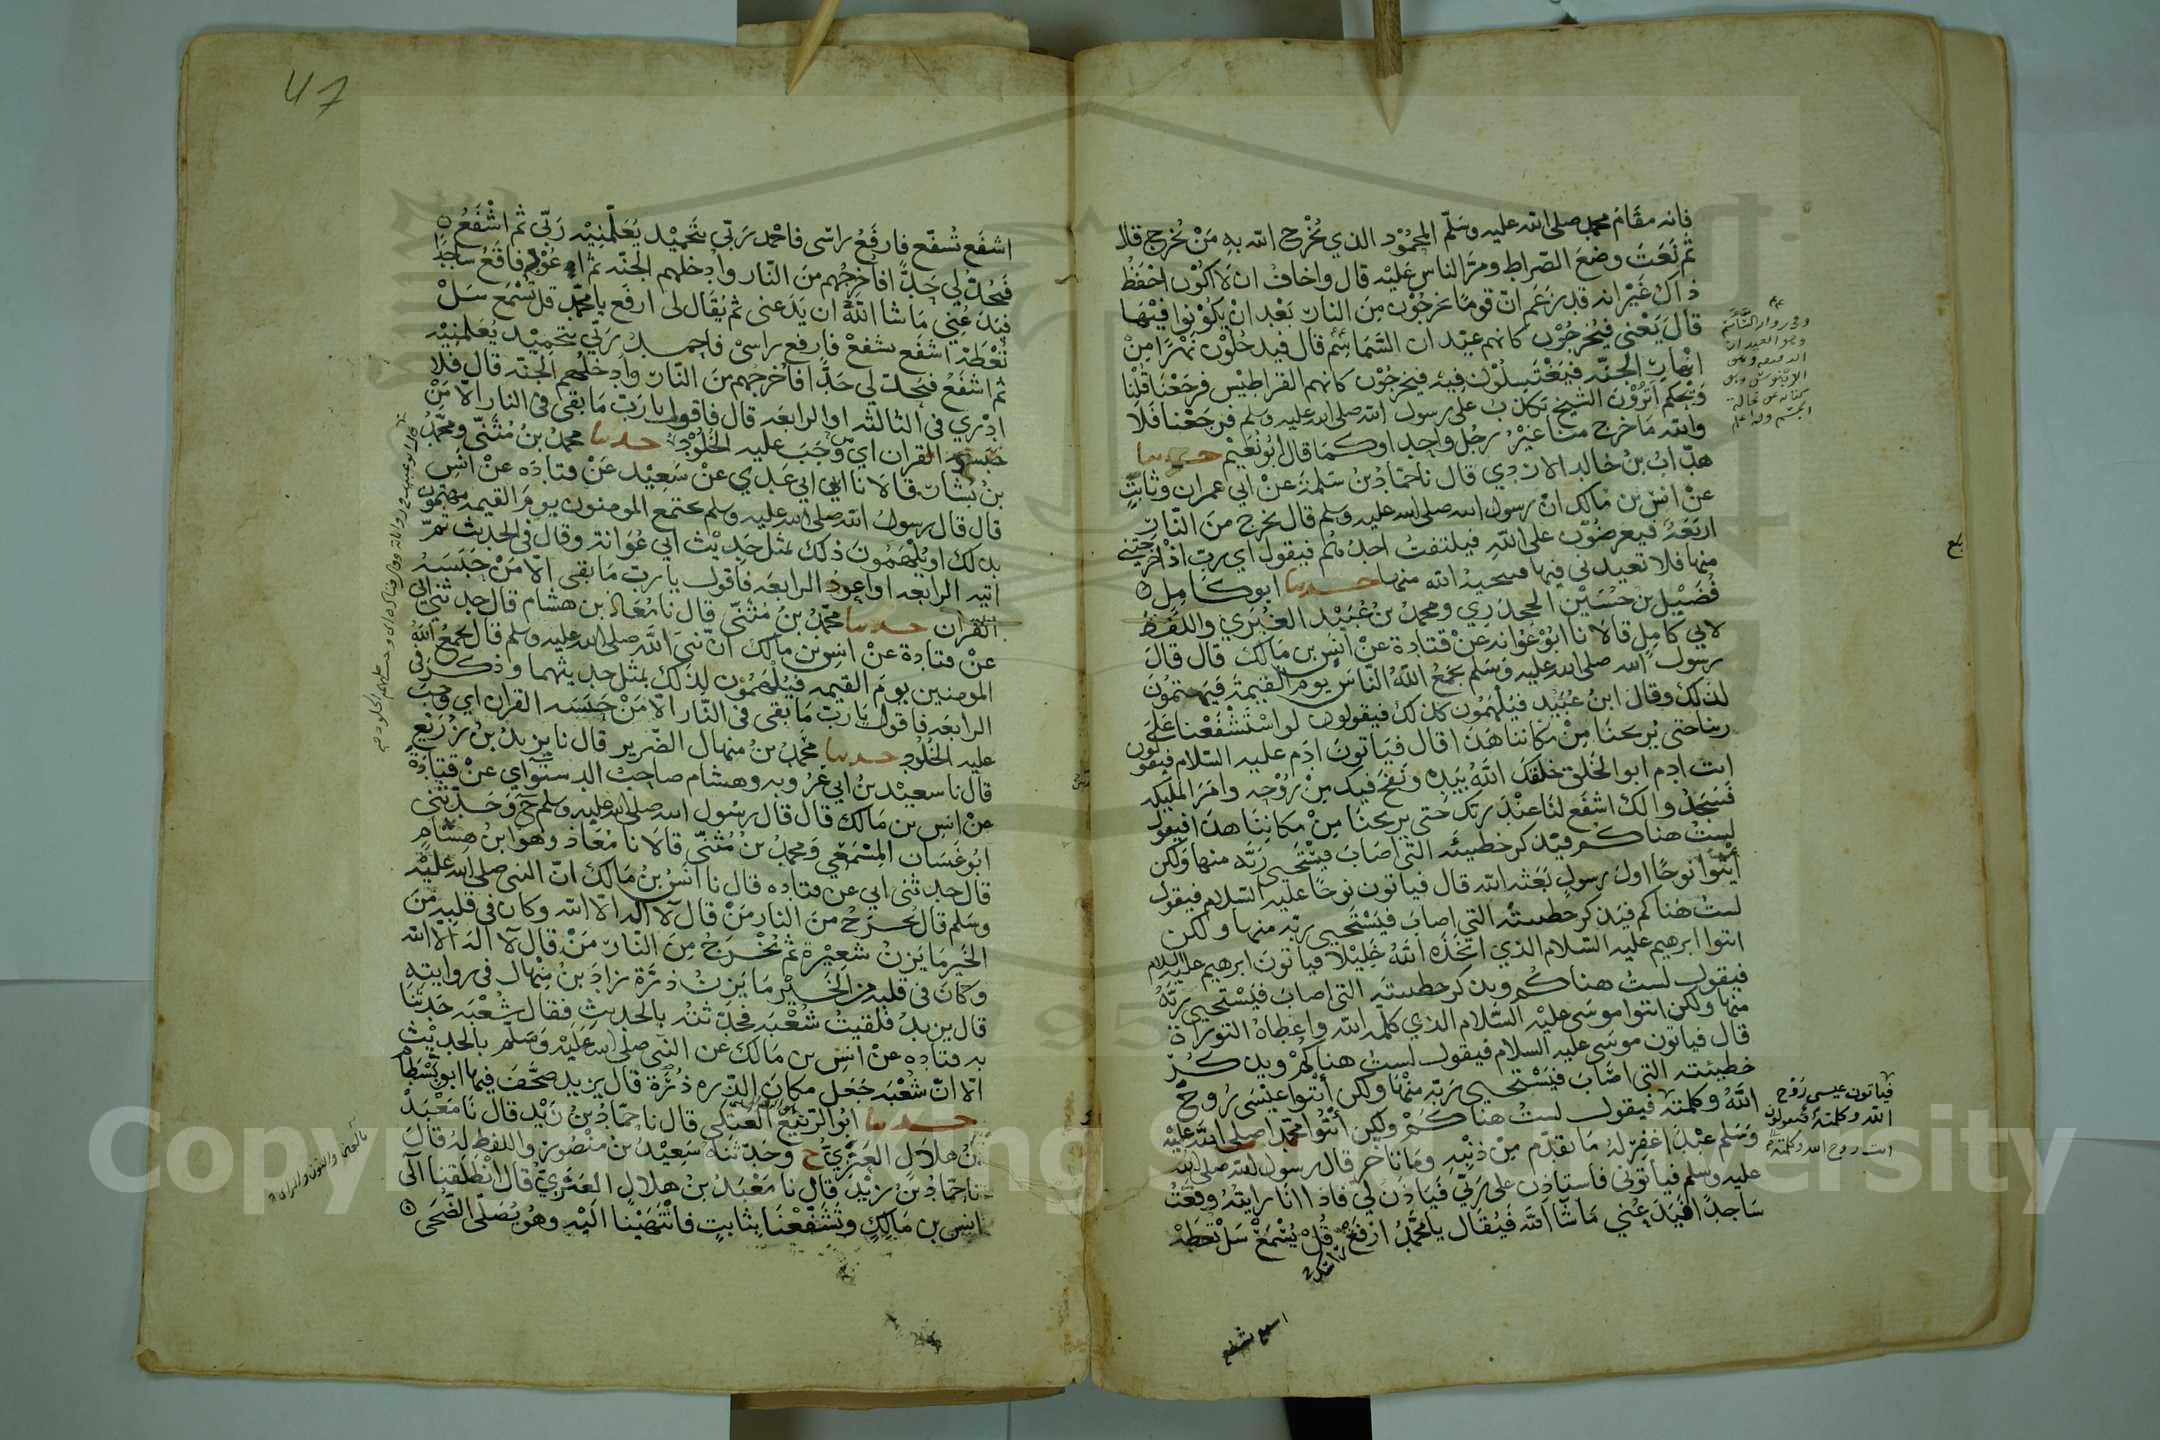 فانه مقام محمد صلى الله عليه وسلم المحمود الذي يخرج الله به من يخرج قال
ثم نعت وضع الصراط ومر الناس عليه قال واخاف ان لا اكون احفظ
ذاك غير انه قد زعم ان قوما يخرجون من النار بعد ان يكونوا فيها
قال يعني فيخرجون كانهم عيدان السماسم قال فيدخلون نهرا من
انهار الجنه فيغتسلون فيه فيخرجون كانهم القراطيس فرجعنا قلنا
ويحكم اترون الشيخ يكذب على رسول الله صلى الله عليه وسلم فرجعنا فلا
والله ما خرج منا غير رجل واحد او كما قال ابو نعيم حدثنا
هداب بن خالد الازدي قال نا حماد بن سلمة عن ابي عمران وثابت
عن انس بن مالك ان رسول الله صلى الله عليه وسلم قال يخرج من النار
اربعة فيعرضون على الله فيلتفت احدهم فيقول اي رب اذ اخرجتني
منها فلا تعيدني فيها فينجيه الله منها حدثنا ابو كامل
فضيل بن حسين الجحدري ومحمد بن عبيد الغبري واللفظ
لابي كامل قالا نا ابو عوانه عن قتادة عن انس بن مالك قال قال
رسول الله صلى الله عليه وسلم يجمع الله الناس يوم القيمة فيهتمون
لذلك وقال ابن عبيد فيلهمون لذلك فيقولون لو استشفعنا على
ربنا حتى يريحنا من مكاننا هذا قال فياتون ادم عليه السلام فيقولون
انت ادم ابو الخلق خلقك الله بيده ونفخ فيك من روحه وامر المليكه
فسجدوا لك اشفع لنا عند ربك حتى يريحنا من مكاننا هذا فيقول
لست هناكم فيذكر خطيئته التي اصاب فيستحيي ربه منها ولكن
أيتوا نوحا اول رسول بعثه الله قال فياتون نوحا عليه السلام فيقول
لست هناكم فيذكر خطيئته التي اصاب فيستحيي ربه منها ولكن
ائتوا ابرهيم عليه السلام الذي اتخذه الله خليلا فياتون ابرهيم عليه السلام
فيقول لست هناكم ويذكر خطيئته التي اصاب فيستحيي ربه
منها ولكن ائتوا موسى عليه السلام الذي كلمه الله واعطاه التوراة
قال فياتون موسى عليه السلام فيقول لست هناكم ويذكر
خطيئته التي اصاب فيستحيي ربه منها ولكن أئتوا عيسى روح
الله وكلمته فيقول لست هناكم ولكن أئتوا محمدا صلى الله عليه
وسلم عبدا غفر له ما تقدم من ذنبه وما تاخر قال رسول الله صلى الله
عليه وسلم فياتوني فاستاذن على ربي فياذن لي فاذا انا رايته وقعت
ساجدا فيدعني ما شا الله فيقال يا محمد ارفع راسك قل يسمع سل تعطه
اشفع تشفع
فياتون عيسى روح
الله وكلمته فيقولون
انت روح الله وكلمته
47
اشفع تشفع فارفع راسي فاحمد ربي بتحميد يعلمنيه ربي ثم اشفع
فيحد لي حدا فاخرجهم من النار وادخلهم الجنه ثم اعود فاقع ساجدا
فيدعني ما شا الله ان يدعني ثم يقال لي ارفع يا محمد قل تسمع سل
تعطه اشفع تشفع فارفع راسي فاحمد ربي بتحميد يعلمنيه
ثم اشفع فيحد لي حدا فاخرجهم من النار وادخلهم الجنه قال فلا
ادري في الثالثه او الرابعه قال فاقول يا رب ما بقى في النار الا من
حبسه القران اي وجب عليه الخلود حدثنا محمد بن مثنى ومحمد
بن بشار قالا نا ابن ابي عدي عن سعيد عن قتاده عن انس
قال قال رسول الله صلى الله عليه وسلم يجتمع المومنون يوم القيمه فيهتمون
بذلك او يلهمون ذلك بمثل حديث ابي عوانة وقال في الحديث ثم
اتيه الرابعه او اعود الرابعه فاقول يا رب ما بقى الا من حبسه
القران حدثنا محمد بن مثنى قال نا معاذ بن هشام قال حدثني ابي
عن قتادة عن انس بن مالك ان نبي الله صلى الله عليه وسلم قال يجمع الله
المومنين يوم القيمه فيلهمون لذلك بمثل حديثهما وذكر في
الرابعه فاقول يا رب ما بقى في النار الا من حبسه القران اي وجب
عليه الخلود حدثنا محمد بن منهال الضرير قال نا يزيد بن زريع
قال نا سعيد بن ابي عروبه وهشام صاحب الدستواي عن قتادة
عن انس بن مالك قال قال رسول الله صلى الله عليه وسلم ح وحدثني
ابو غسان المسمعي ومحمد بن مثنى قالا نا معاذ وهو ابن هشام
قال حدثني ابي عن قتاده قال نا انس بن مالك ان النبي صلى الله عليه
وسلم قال يخرج من النار من قال لا اله الا الله وكان في قلبه من
الخير ما يزن شعيرة ثم يخرج من النار من قال لا اله الا الله
وكان في قلبه من الخير ما يزن ذرة زاد بن منهال في روايته
قال يزيد فلقيت شعبه فحدثته بالحديث فقال شعبه حدثنا
به قتاده عن انس بن مالك عن النبي صلى الله عليه وسلم بالحديث
الا ان شعبه جعل مكان الذره ذرة قال يزيد صحف فيها ابو بسطام
حدثنا ابو الربيع العتكي قال نا حماد بن زيد قال نا معبد
بن هلال العنزي ح وحدثناه سعيد بن منصور واللفظ له قال
نا حماد بن زيد قال نا معبد بن هلال العنزي قال انطلقنا الى
انس بن مالك وتشفعنا بثابت فانتهينا اليه وهو يصلي الضحى
Copyright © King Saud University
1957